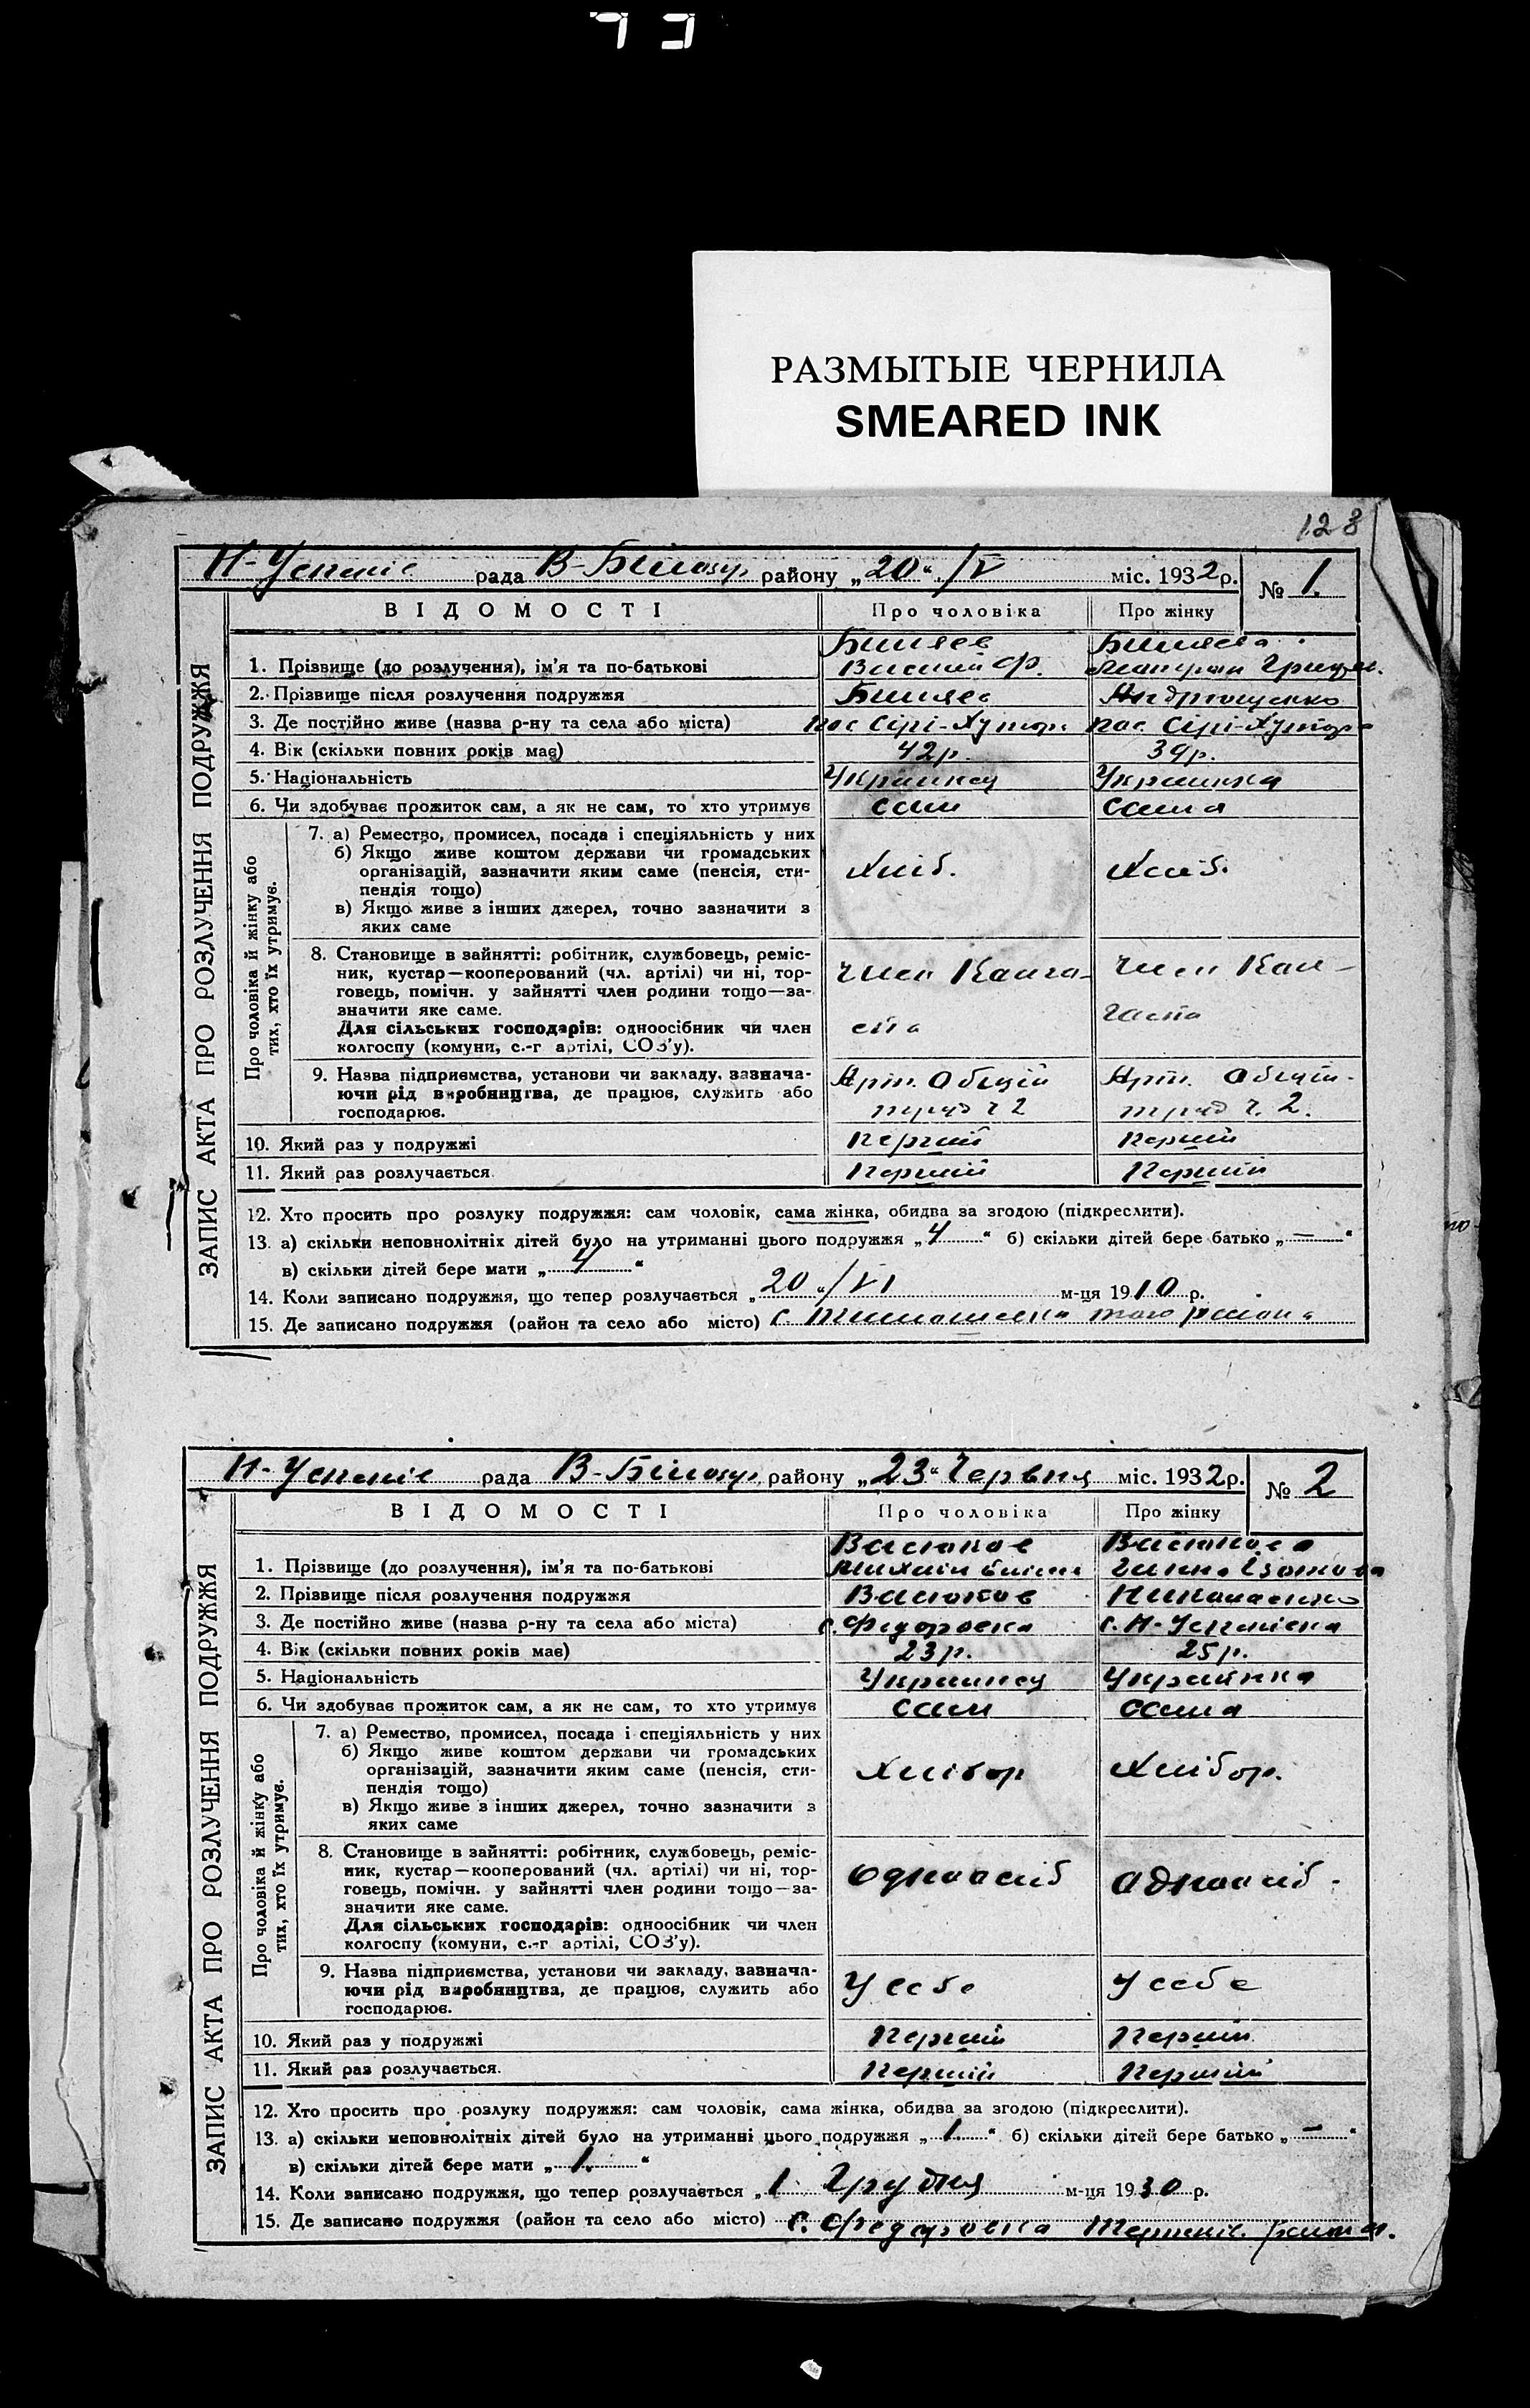 РАЗМЫТЫЕ ЧЕРНИЛА
SMEARED INK
128
ЗАПИС АКТА ПРО РОЗЛУЧЕННЯ ПОДРУЖЖЯ
Н-Успеніє рада В-Білозур району „20“ /V міс. 1932 р. № 1.
ВІДОМОСТІ Про чоловіка Про жінку
1. Прізвище (до розлучення), ім'я та по-батькові
2. Прізвище після розлучення подружжя Андрющенко
3. Де постійно живе (назва р-ну та села або міста) пос Сірі-Хутор пос. Сірі-Хутора
4. Вік (скільки повних років має) 42р. 39р.
5. Національність Українец Украинка
6. Чи здобуває прожиток сам, а як не сам, то хто утримує сам сама
Про чоловіка й жінку або тих, хто їх утримує.
7. а) Ремество, промисел, посада і спеціяльність у них
б) Якщо живе коштом держави чи громадських
організацій, зазначити яким саме (пенсія, сти-
пендія тощо)
в) Якщо живе з інших джерел, точно зазначити з
яких саме
Хліб. Хліб.
8. Становище в зайнятті: робітник, службовець, реміс-
ник, кустар—кооперований (чл. артілі) чи ні, тор-
говець, помічн. у зайнятті член родини тощо—за-
значити яке саме.
Для сільських господарів: одноосібник чи член
колгоспу (комуни, с.-г артілі, СОЗ'у).
член член
9. Назва підприємства, установи чи закладу, зазнача-
ючи рід виробництва, де працює, служить або
господарює.
Арт. Общий Арт. Общий
труд ч 2 труд ч. 2.
10. Який раз у подружжі перший перший
11. Який раз розлучається перший перший
12. Хто просить про розлуку подружжя: сам чоловік, сама жінка, обидва за згодою (підкреслити).
13. а) скільки неповнолітніх дітей було на утриманні цього подружжя „4“ б) скільки дітей бере батько „—“
в) скільки дітей бере мати „4“
14. Коли записано подружжя, що тепер розлучається „20“/VI м-ця 1910 р.
15. Де записано подружжя (район та село або місто) с. Тимошовка того района
ЗАПИС АКТА ПРО РОЗЛУЧЕННЯ ПОДРУЖЖЯ
Н-Успеніє рада В-Білозур району „23“ Червня міс. 1932 р. № 2
ВІДОМОСТІ Про чоловіка Про жінку
Васюков Васюкова
1. Прізвище (до розлучення), ім'я та по-батькові Михаіл
2. Прізвище після розлучення подружжя Васюков Николаенко
3. Де постійно живе (назва р-ну та села або міста) с. Федоровка с. Н-Успенівка
4. Вік (скільки повних років має) 23р. 25р.
5. Національність Украинец Українка
6. Чи здобуває прожиток сам, а як не сам, то хто утримує сам сама
Про чоловіка й жінку або тих, хто їх утримує.
7. а) Ремество, промисел, посада і спеціяльність у них
б) Якщо живе коштом держави чи громадських
організацій, зазначити яким саме (пенсія, сти-
пендія тощо)
в) Якщо живе з інших джерел, точно зазначити з
яких саме
Хлібор Хлібор.
8. Становище в зайнятті: робітник, службовець, реміс-
ник, кустар—кооперований (чл. артілі) чи ні, тор-
говець, помічн. у зайнятті член родини тощо—за-
значити яке саме.
Для сільських господарів: одноосібник чи член
колгоспу (комуни, с.-г артілі, СОЗ'у).
одноосіб одноосіб.
9. Назва підприємства, установи чи закладу, зазнача-
ючи рід виробництва, де працює, служить або
господарює.
У себе У себе
10. Який раз у подружжі перший перший
11. Який раз розлучається. перший перший
12. Хто просить про розлуку подружжя: сам чоловік, сама жінка, обидва за згодою (підкреслити).
13. а) скільки неповнолітніх дітей було на утриманні цього подружжя „1.“ б) скільки дітей бере батько „—“
в) скільки дітей бере мати „1.“
14. Коли записано подружжя, що тепер розлучається „1 Грудня м-ця 1930 р.
15. Де записано подружжя (район та село або місто) с. Федоровка